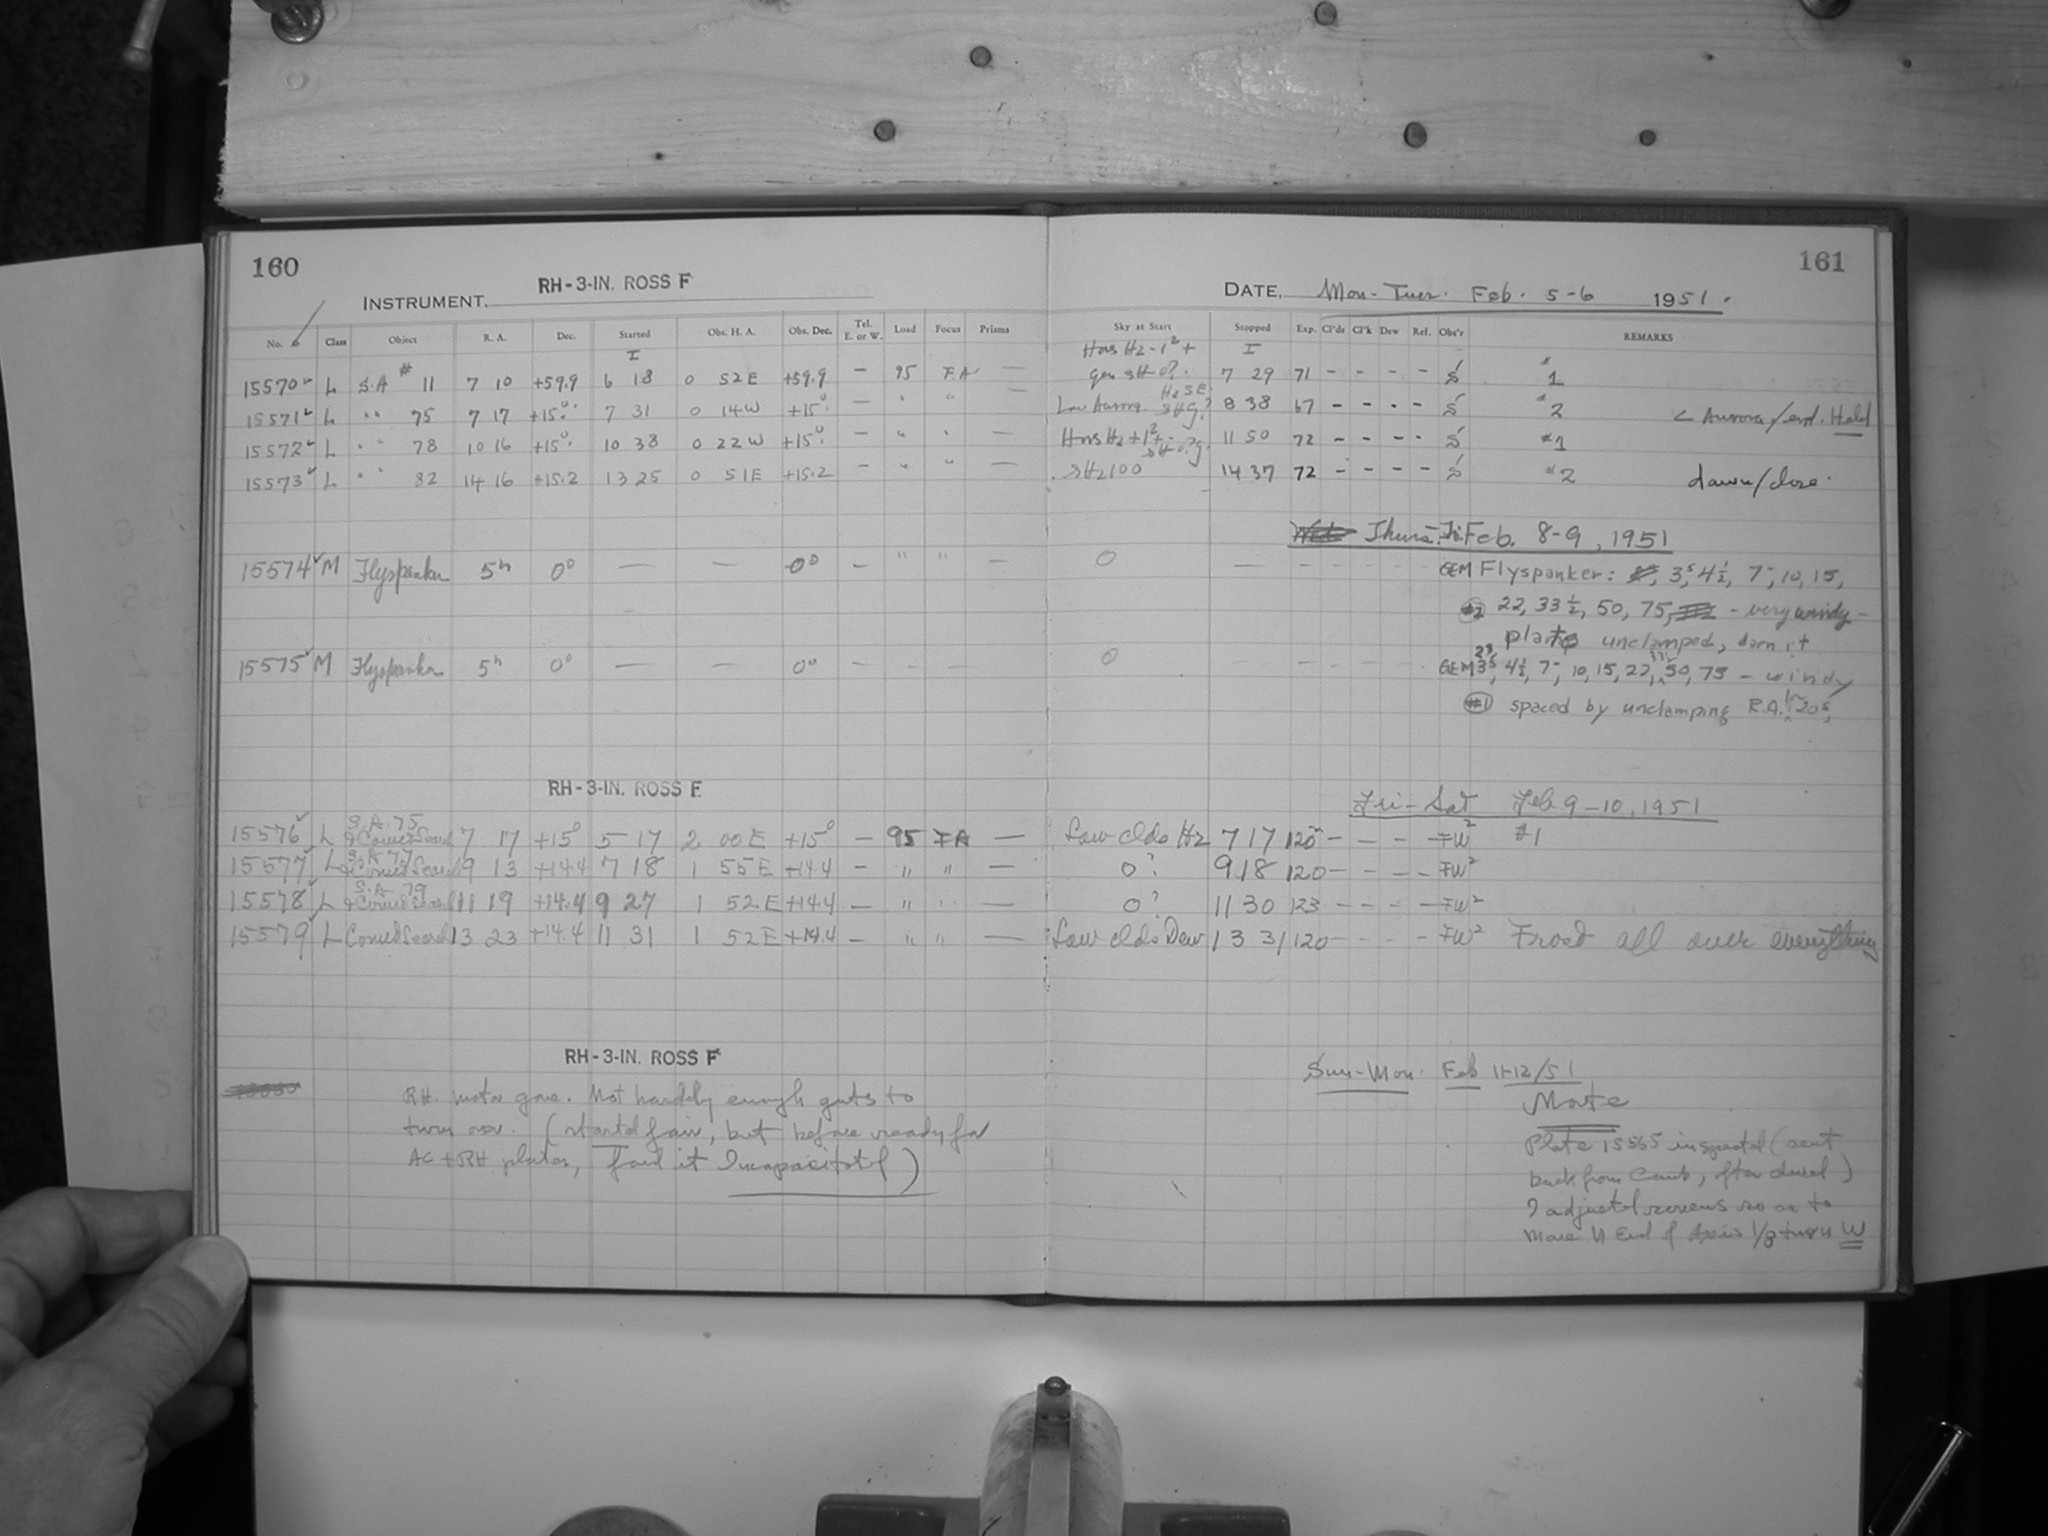 160
161
INSTRUMENT, RH-3-IN. ROSS F
DATE, Mon-Tues. Feb. 5-6 1951.
No. Class Object R. A. Dec. Started Obs. H. A. Obs. Dec. Tel. E. or W. Load Focus Prisms Sky at Start Stopped Exp. Cl'ds Cl'k Dew Ref. Obs'r REMARKS
15570 L S.A # 11 7 10 +59.9 6 18 0 52 E +59.9 — 95 F.A — 7 29 71 - - - - S #1
15571 L " " 75 7 17 +15° 7 31 0 14 W +15° — " " — 8 38 67 - - - - S #2 < Aurora/end. Held
15572 L " " 78 10 16 +15° 10 38 0 22 W +15° — " " — 11 50 72 - - - - S #1
15573 L " " 82 14 16 +15.2 13 25 0 51 E +15.2 — " " — sHz 100 14 37 72 - - - - S #2 dawn/close.
Thurs.-Fri. Feb. 8-9, 1951
15574 M Flyspanker 5h 0° — — 0° — " " — 0 — - - - - - GEM Flyspanker: 3.5, 4½, 7-, 10, 15,
#2 22, 33½, 50, 75, - very windy -
plate unclamped, darn it
15575 M Flyspanker 5h 0° — — 0° — - - — 0 - - - - - GEM 3.5, 4½, 7-, 10, 15, 22, 33½, 50, 75 - windy
#1 spaced by unclamping R.A. 20s,
RH-3-IN. ROSS F
Fri-Sat Feb 9-10, 1951
15576 L S.A. 75 & Comet Search 7 17 +15° 5 17 2 00 E +15° — 95 FA — Low clds Hz 7 17 120 - - - - FW² #1
15577 L S.A. 77 & Comet Search 9 13 +14.4 7 18 1 55 E +14.4 — " " — 0? 9 18 120 - - - - FW²
15578 L S.A. 79 & Comet Search 11 19 +14.4 9 27 1 52 E +14.4 — " " — 0? 11 30 123 - - - - FW²
15579 L Comet Search 13 23 +14.4 11 31 1 52 E +14.4 — " " — Low clds Dew 13 31 120 - - - - FW² Frost all over everything
RH-3-IN. ROSS F
Sun-Mon. Feb 11-12/51
RH. motor gone. Not hardly enough guts to
turn over. (started fair, but before ready for
AC + RH plates, found it Incapacitated)
Note
Plate 15565 inspected (sent
back from Camb, after devel)
I adjusted screws so as to
move N End of Axis 1/8 turn W